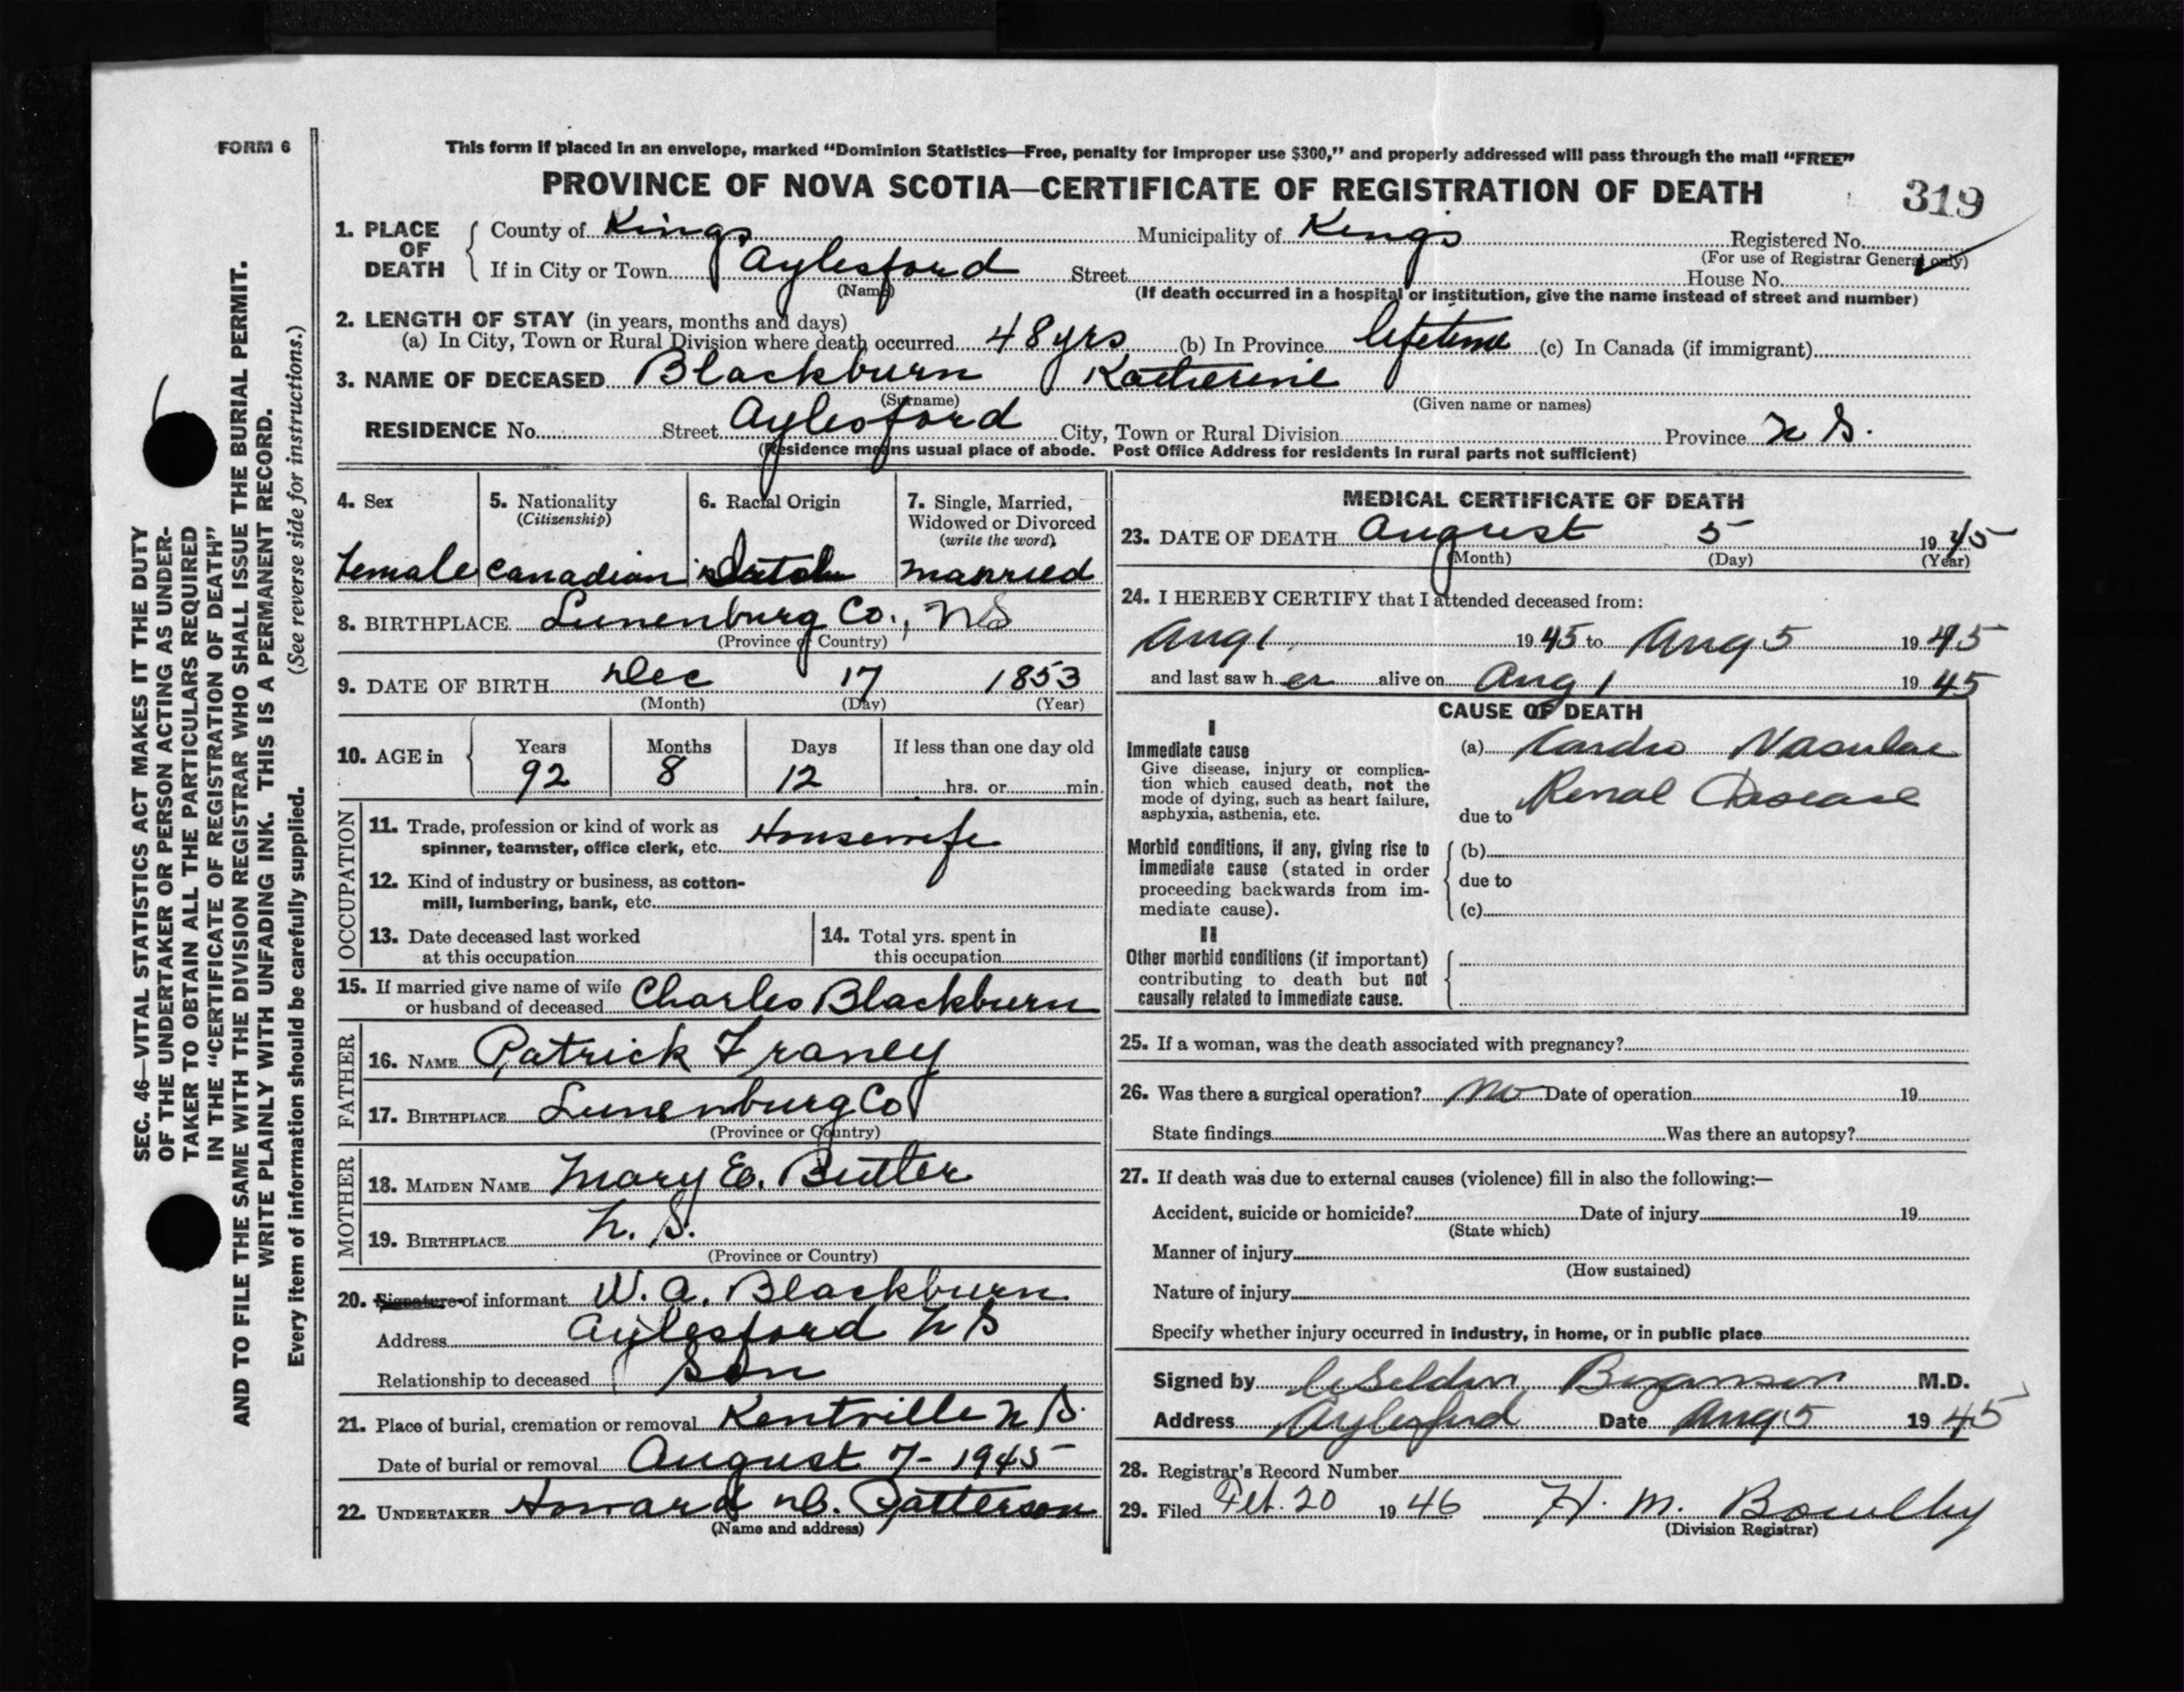 FORM 6
This form if placed in an envelope, marked "Dominion Statistics—Free, penalty for improper use $300," and properly addressed will pass through the mail "FREE"
PROVINCE OF NOVA SCOTIA—CERTIFICATE OF REGISTRATION OF DEATH
319
1. PLACE OF DEATH County of Kings Municipality of Kings Registered No.
(For use of Registrar General only)
If in City or Town Aylesford Street House No.
(Name) (If death occurred in a hospital or institution, give the name instead of street and number)
2. LENGTH OF STAY (in years, months and days)
(a) In City, Town or Rural Division where death occurred 48 yrs (b) In Province lifetime (c) In Canada (if immigrant)
3. NAME OF DECEASED Blackburn Katherine
(Surname) (Given name or names)
RESIDENCE No. Street Aylesford City, Town or Rural Division Province N S.
(Residence means usual place of abode. Post Office Address for residents in rural parts not sufficient)
4. Sex
Female
5. Nationality
(Citizenship)
Canadian
6. Racial Origin
Dutch
7. Single, Married,
Widowed or Divorced
(write the word)
married
8. BIRTHPLACE Lunenburg Co., NS
(Province or Country)
9. DATE OF BIRTH Dec 17 1853
(Month) (Day) (Year)
10. AGE in Years Months Days If less than one day old
92 8 12 hrs. or min.
OCCUPATION
11. Trade, profession or kind of work as
spinner, teamster, office clerk, etc. Housewife
12. Kind of industry or business, as cotton-
mill, lumbering, bank, etc.
13. Date deceased last worked
at this occupation
14. Total yrs. spent in
this occupation
15. If married give name of wife
or husband of deceased Charles Blackburn
FATHER
16. NAME Patrick Franey
17. BIRTHPLACE Lunenburg Co
(Province or Country)
MOTHER
18. MAIDEN NAME Mary E. Butler
19. BIRTHPLACE N. S.
(Province or Country)
20. Signature of informant W. A. Blackburn
Address Aylesford N S
Relationship to deceased Son
21. Place of burial, cremation or removal Kentville N S.
Date of burial or removal August 7- 1945
22. UNDERTAKER Howard Patterson
(Name and address)
MEDICAL CERTIFICATE OF DEATH
23. DATE OF DEATH August 5 1945
(Month) (Day) (Year)
24. I HEREBY CERTIFY that I attended deceased from:
Aug 1 1945 to Aug 5 1945
and last saw h er alive on Aug 1 1945
CAUSE OF DEATH
I
Immediate cause
Give disease, injury or complica-
tion which caused death, not the
mode of dying, such as heart failure,
asphyxia, asthenia, etc.
(a) Cardio Vascular
Renal Disease
due to
Morbid conditions, if any, giving rise to
immediate cause (stated in order
proceeding backwards from im-
mediate cause).
(b)
due to
(c)
II
Other morbid conditions (if important)
contributing to death but not
causally related to immediate cause.
25. If a woman, was the death associated with pregnancy?
26. Was there a surgical operation? No Date of operation 19
State findings Was there an autopsy?
27. If death was due to external causes (violence) fill in also the following:—
Accident, suicide or homicide? Date of injury 19
(State which)
Manner of injury
(How sustained)
Nature of injury
Specify whether injury occurred in industry, in home, or in public place
Signed by M.D.
Address Aylesford Date Aug 5 1945
28. Registrar's Record Number
29. Filed Feb. 20 1946 H. M. Bowlby
(Division Registrar)
SEC. 46—VITAL STATISTICS ACT MAKES IT THE DUTY
OF THE UNDERTAKER OR PERSON ACTING AS UNDER-
TAKER TO OBTAIN ALL THE PARTICULARS REQUIRED
IN THE "CERTIFICATE OF REGISTRATION OF DEATH"
AND TO FILE THE SAME WITH THE DIVISION REGISTRAR WHO SHALL ISSUE THE BURIAL PERMIT.
WRITE PLAINLY WITH UNFADING INK. THIS IS A PERMANENT RECORD.
Every item of information should be carefully supplied. (See reverse side for instructions.)